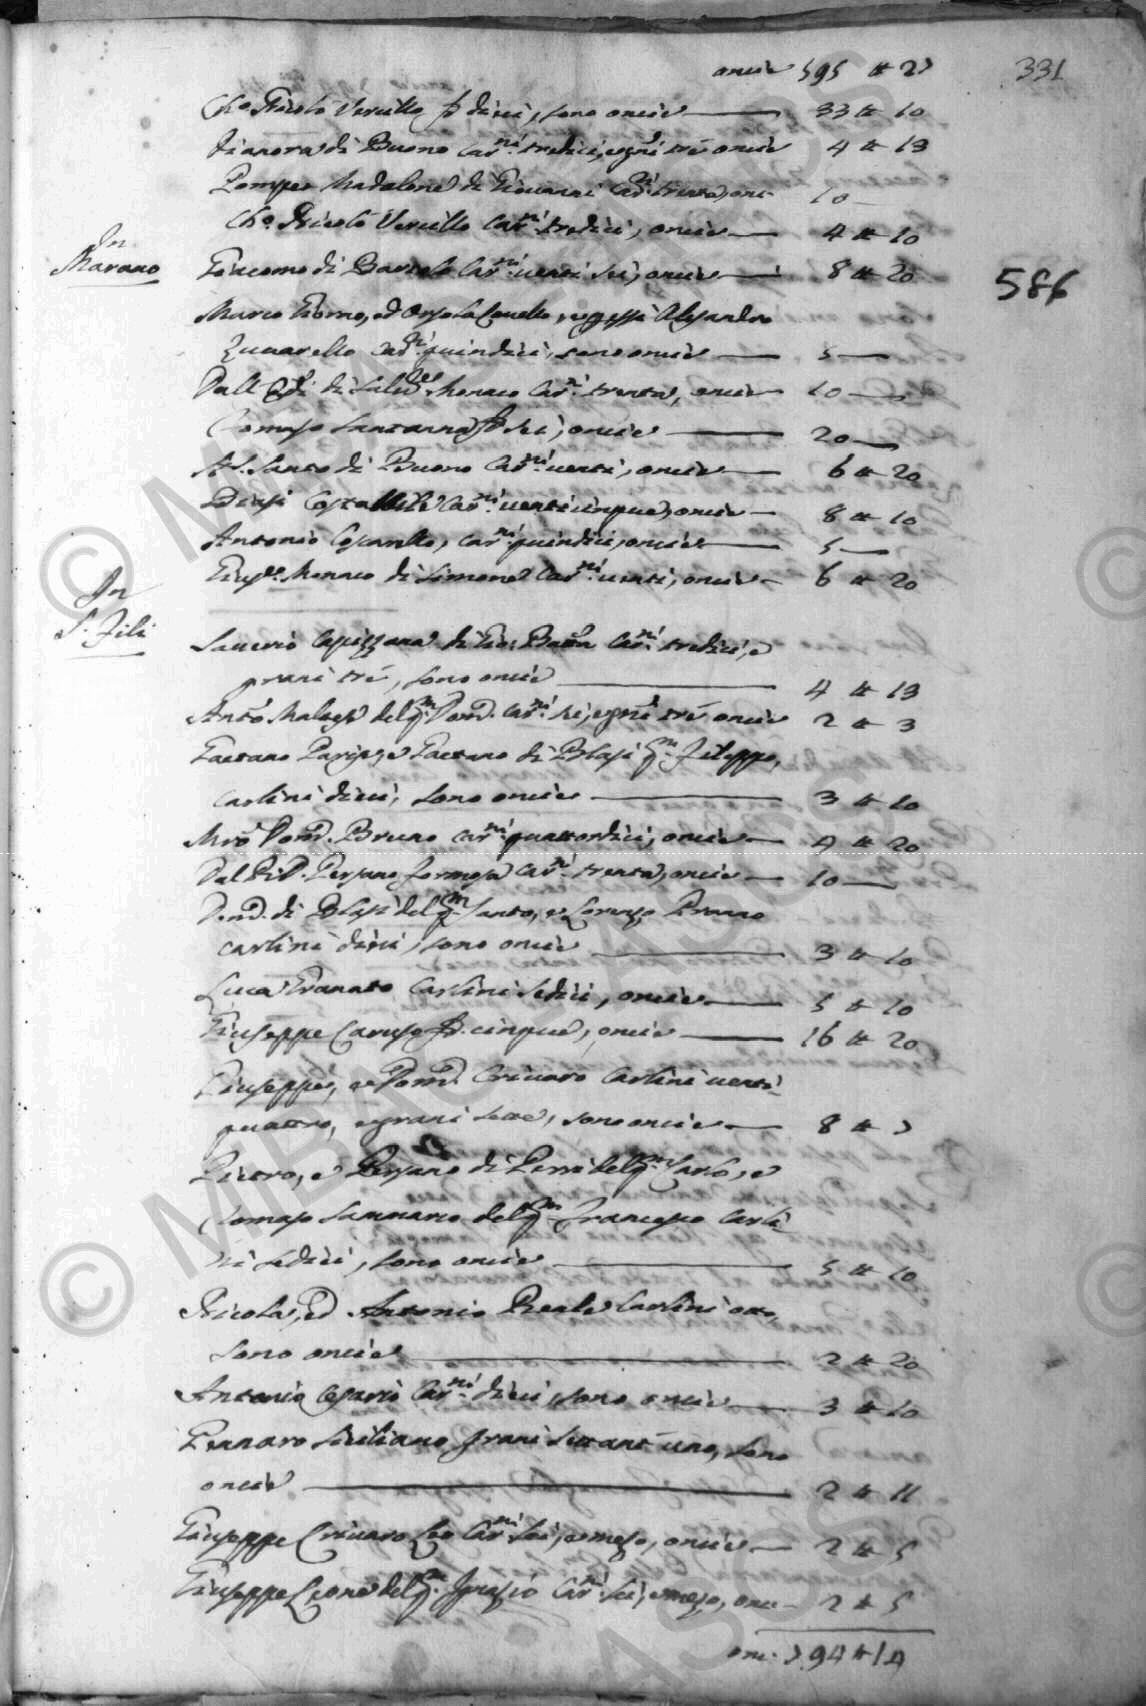 331
oncie 595 # 27
Ch.° Nicolò Vercillo d. dieci, sono oncie 33 # 10
Dianora di Buono Car.ni tredici, e gr.ni tré oncie 4 # 13
Pompeo Madalone di Giovanni Car.ni trenta, onc 10
Ch.° Nicolò Vercillo Car.ni tredici, oncie 4 # 10
In
Marano
Giacomo di Bartolo Car.ni venti sei, oncie 8 # 20
586
Marco Giorno, ed Orsola e per essi Alesandro
Zuccarello Car.ni quindici, sono oncie 5
Dall di Salv.re Monaco Car.ni trenta, oncie 10
Tomaso Santanna d. sei, oncie 20
Santo di Buono Car.ni venti, oncie 6 # 20
Biasi Costabile Car.ni venticinque, oncie 8 # 10
Antonio Car.ni quindici, oncie 5
Gius.e Monaco di Simone Car.ni venti, oncie 6 # 20
In
S. Fili
Saverio di Gio: Batta Car.ni tredici, e
grani tré, sono oncie 4 # 13
Ant.o del qm. Dom.co Car.ni sei, e gr.ni tré oncie 2 # 3
Gaetano e Gaetano di Blasi qm. Filippo,
carlini dieci, sono oncie 3 # 10
M.ro Dom.co Bruno Car.ni quattordici, oncie 4 # 20
Dal Car.ni trenta, oncie 10
Dom.co di Blasi del qm. Santo, e Lorenzo
carlini dieci, sono oncie 3 # 10
Luca Granato Carlini sedici, oncie 5 # 10
Giuseppe Caruso d. cinque, oncie 16 # 20
Giuseppe, e Dom.co Crivaro Carlini venti
quattro, e grani sette, sono oncie 8 # 7
Pietro, e di Perri del qm. Carlo, e
Tomaso Sammarco del qm. Francesco Carli
ni sedici, sono oncie 5 # 10
Nicola, ed Antonio Reale Carlini otto,
sono oncie 2 # 20
Antonio Cesario Car.ni dieci, sono oncie 3 # 10
Gennaro Siciliano grani settant'uno, sono
oncie 2 # 11
Giuseppe Crivaro Car.ni sei, e mezo, oncie 2 # 5
Giuseppe Leone del qm. Ignazio Car.ni sei, e mezo, onc 2 # 5
onc. 794 # 14
© MIBAC - ASCS